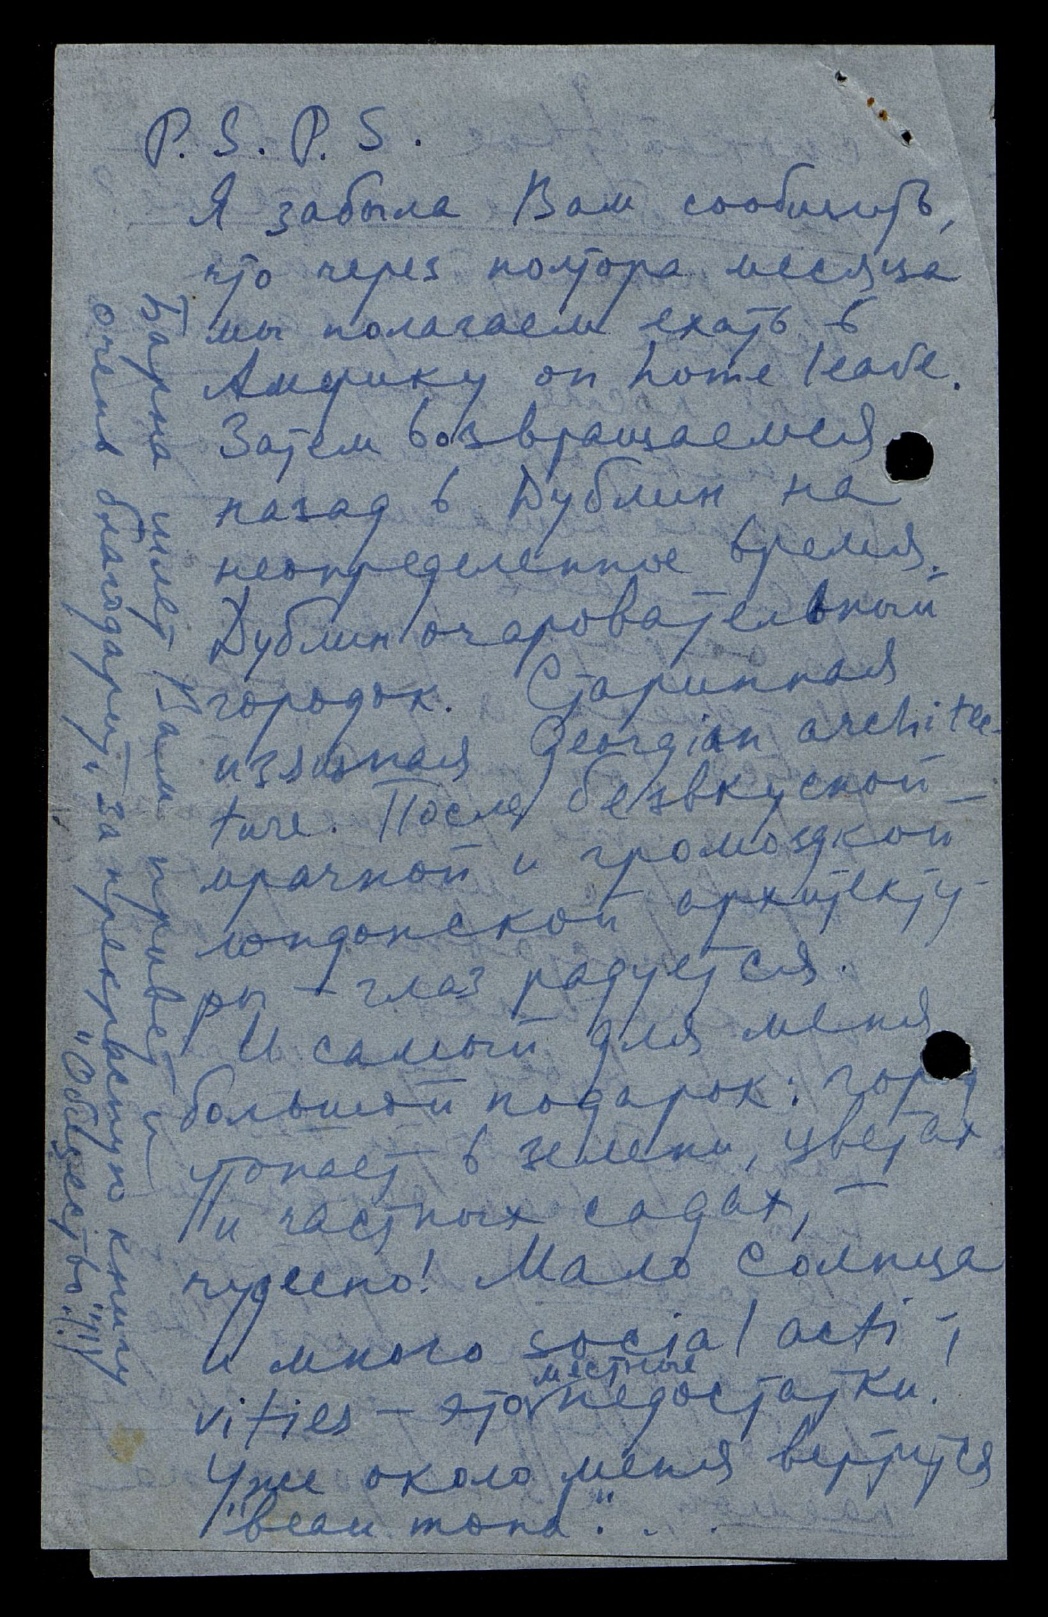 P.S.P.S.
Я забыла Вам сообщить,
что через полтора месяца
мы полагаем ехать в
Америку on home leave.
Затем возвращаемся
назад в Дублин на
неопределенное время.
Дублин очаровательный
городок. Старинная
изящная Georgian architec-
ture. После безвкусной
мрачной и громоздкой
лондонской архитекту-
ры – глаз радуется.
И самый для меня
большой подарок: город
тонет в зелени, цветах
и частных садах, –
чудесно! Мало солнца
и много social acti-
vities – это местные недостатки.
Уже около меня вертится
"beau monde"...
Барна шлет Вам привет и
очень благодарит за прекрасную книгу
"Общество"!!